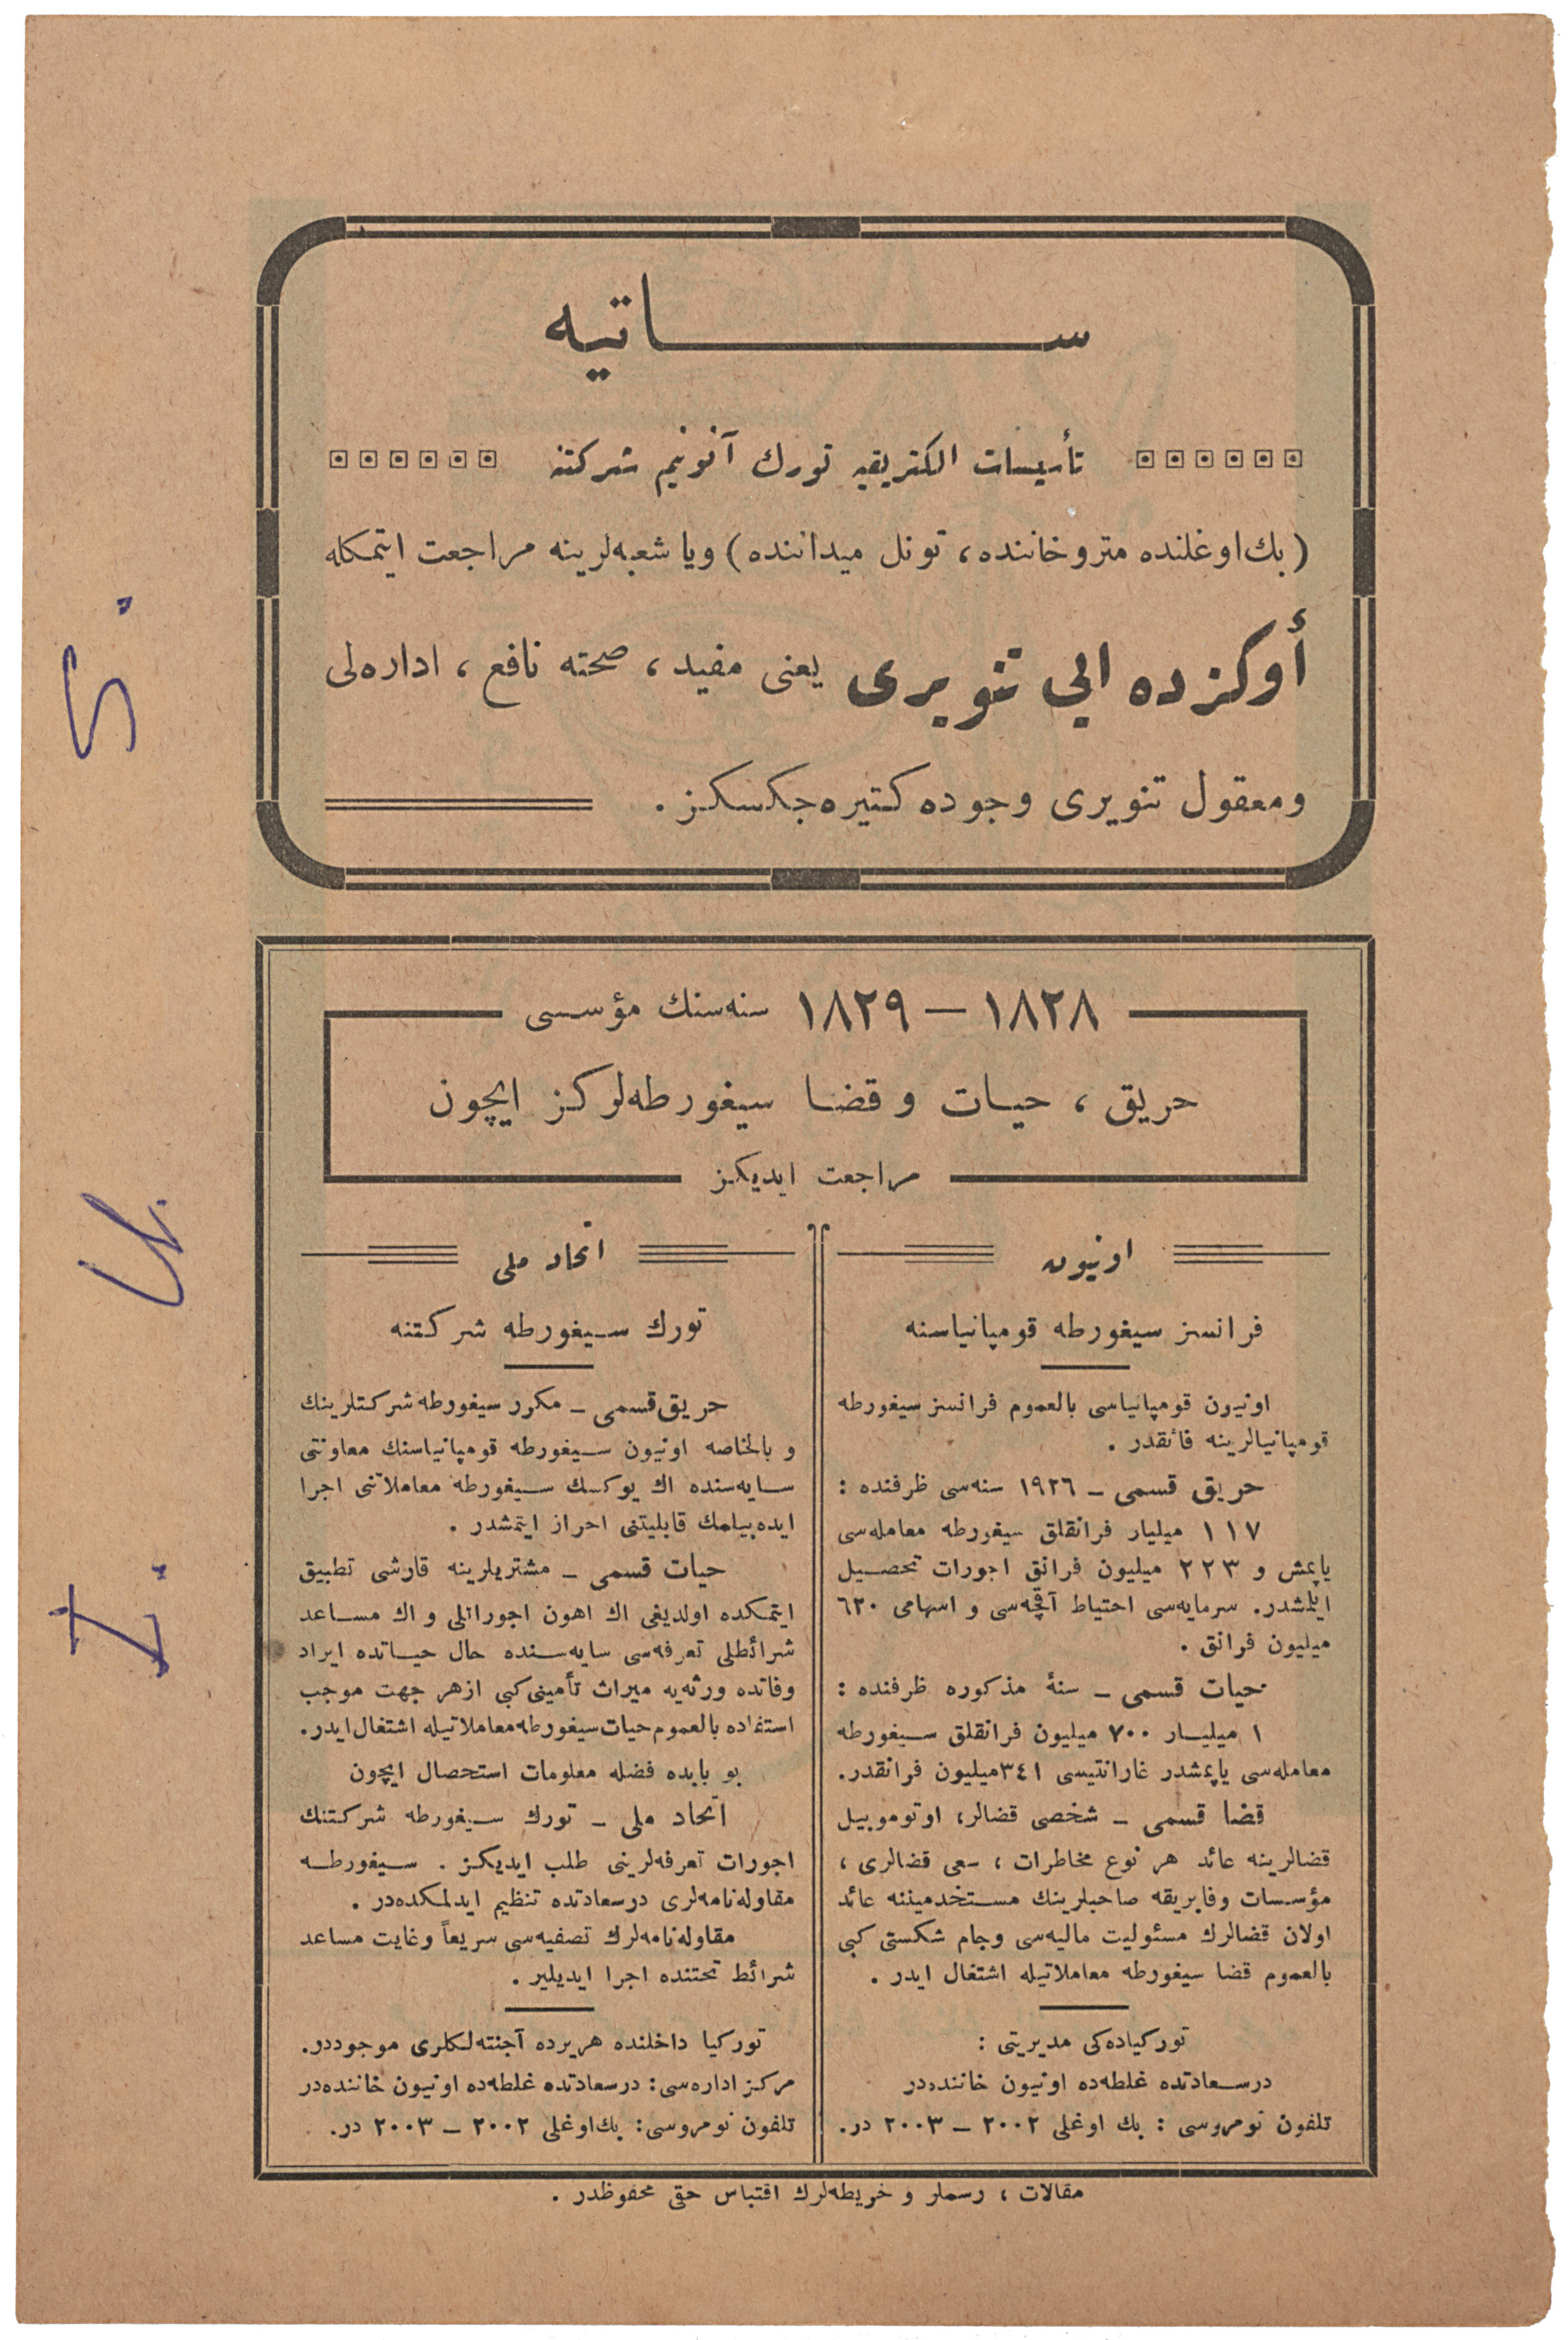 ساتیه
تأسیسات الکتریقیه تورك آنونیم شرکتنه
(بك‌اوغلنده متروخاننده، تونل میداننده) ویا شعبه‌لرینه مراجعت ایتمکله
أوکزده ایی تنویری یعنی مفید، صحته نافع، اداره‌لی
ومعقول تنویری وجوده کتیره‌جکسکز.
۱۸۲۸ – ۱۸۲۹ سنه‌سنك مؤسسی
حریق، حیات و قضا سیغورطه‌لرکز ایچون
مراجعت ایدیکز
اونیون
فرانسز سیغورطه قومپانیاسنه
اونیون قومپانیاسی بالعموم فرانسز سیغورطه
قومپانیالرینه فائقدر.
حریق قسمی – ۱۹۲٦ سنه‌سی ظرفنده :
۱۱۷ میلیار فرانقلق سیغورطه معامله‌سی
یاپمش و ۲۲۳ میلیون فرانق اجورات تحصیل
ایلمشدر. سرمایه‌سی احتیاط آقچه‌سی و اسهامی ٦۲۰
میلیون فرانق.
حیات قسمی – سنهٔ مذکوره ظرفنده :
۱ میلیار ۷۰۰ میلیون فرانقلق سیغورطه
معامله‌سی یاپمشدر غارانتیسی ۳٤۱ میلیون فرانقدر.
قضا قسمی – شخصی قضالر، اوتوموبیل
قضالرینه عائد هر نوع مخاطرات، سعی قضالری،
مؤسسات وفابریقه صاحبلرینك مستخدمیننه عائد
اولان قضالرك مسئولیت مالیه‌سی وجام شکستی کبی
بالعموم قضا سیغورطه معاملاتیله اشتغال ایدر.
تورکیاده‌کی مدیریتی :
درسعادتده غلطه‌ده اونیون خاننده‌در
تلفون نومروسی : بك اوغلی ۲۰۰۲ – ۲۰۰۳ در.
اتحاد ملی
تورك سیغورطه شرکتنه
حریق قسمی – مکرر سیغورطه شرکتلرینك
و بالخاصه اونیون سیغورطه قومپانیاسنك معاونتی
سایه‌سنده اك یوکسك سیغورطه معاملاتنی اجرا
ایده‌بیلمك قابلیتنی احراز ایتمشدر.
حیات قسمی – مشتریلرینه قارشی تطبیق
ایتمکده اولدیغی اك اهون اجوراتلی و اك مساعد
شرائطلی تعرفه‌سی سایه‌سنده حال حیاتده ایراد
وفاتده ورثه‌یه میراث تأمینی کبی ازهر جهت موجب
استفاده بالعموم حیات سیغورطه معاملاتیله اشتغال ایدر.
بو بابده فضله معلومات استحصال ایچون
اتحاد ملی – تورك سیغورطه شرکتنك
اجورات تعرفه‌لرینی طلب ایدیکز. سیغورطه
مقاوله‌نامه‌لری درسعادتده تنظیم ایدلمکده‌در.
مقاوله‌نامه‌لرك تصفیه‌سی سریعاً وغایت مساعد
شرائط تحتنده اجرا ایدیلیر.
تورکیا داخلنده هریرده آجنته‌لکلری موجوددر.
مرکز اداره‌سی: درسعادتده غلطه‌ده اونیون خاننده‌در
تلفون نومروسی: بك‌اوغلی ۲۰۰۲ – ۲۰۰۳ در.
مقالات، رسملر و خریطه‌لرك اقتباس حقی محفوظدر.
I. U. S.